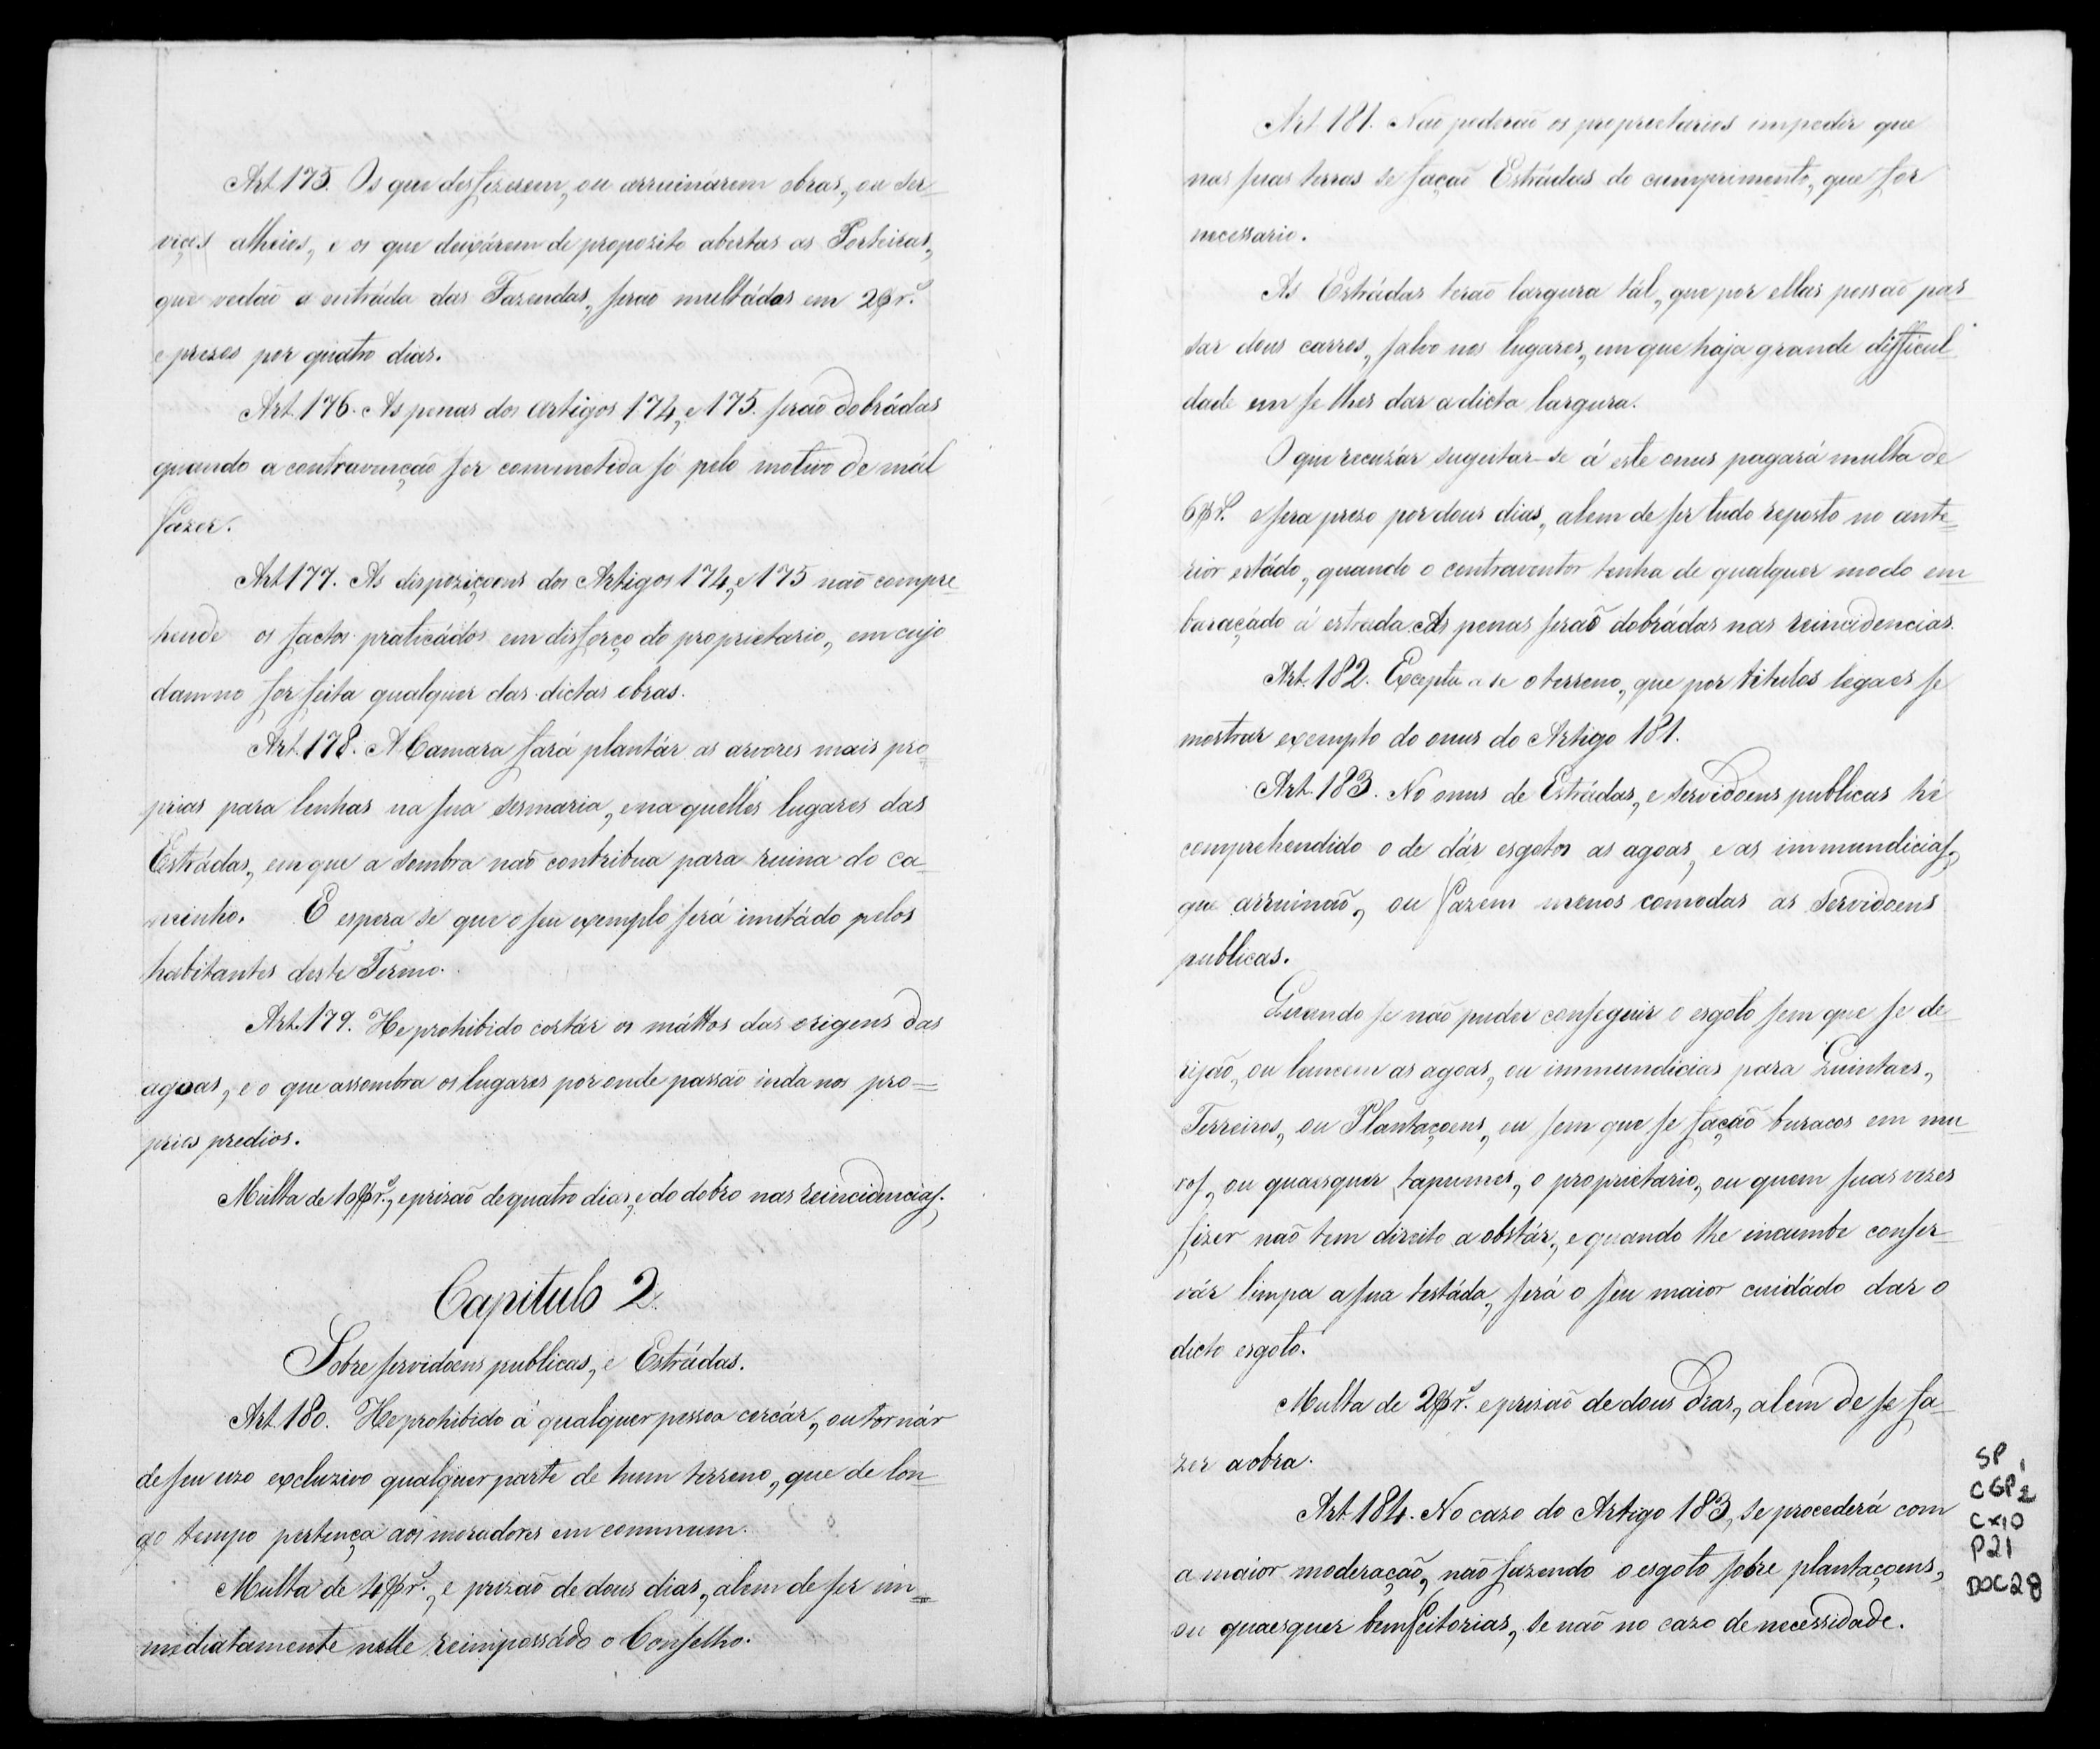 Art. 175. Os que desfizerem, ou arruinárem obras, ou ser-
viços alheios, e os que deixárem de propozito abertas as Porteiras,
que vedão a entráda das Fazendas, serão multádos em 2$rs.
e prezos por quatro dias.
Art. 176. As penas dos Artigos 174, e 175 serão dobrádas
quando a contravenção for commetida só pelo motivo de mál
fazer.
Art. 177. As dispoziçoens dos Artigos 174, e 175 não compre-
hende os factos praticádos em disforço do proprietario, em cujo
damno for feita qualquer das dictas obras.
Art. 178. A Camara fará plantár as arvores mais pro=
prias para lenhas na sua sesmaria, e na quelles lugares das
Estrádas, em que a sombra não contribua para ruina do ca-
minho. E espera se que o seu exemplo será imitádo pelos
habitantes deste Termo.
Art. 179. He prohibido cortár os máttos das origens das
agoas, e o que assombra os lugares por onde passão inda nos pro=
prios predios.
Multa de 10$rs., e prisão de quatro dias, e do dobro nas reincidencias.
Capitulo 2.
Sobre servidoens publicas, e Estrádas.
Art. 180. He prohibido á qualquer pessoa cercár, ou tornár
de seu uzo excluzivo qualquer parte de hum terreno, que de lon-
go tempo pertença aos moradores em commum.
Multa de 4$rs., e prizão de dous dias, alem de ser im=
mediatamente nelle reimpossádo o Conselho.
Art. 181. Não poderão os proprietarios impedir que
nas suas terras se fação Estrádas do cumprimento, que for
necessario.
As Estrádas terão largura tál, que por ellas possão pas-
sar dous carros, salvo nos lugares, em que haja grande difficul-
dade em se lhes dar a dicta largura.
O que recuzár sugeitar-se á este onus pagará multa de
6$rs. e sera prezo por dous dias, alem de ser tudo reposto no ante-
rior estádo, quando o contraventor tenha de qualquer modo em-
baraçádo á estrada. As penas serão dobrádas nas reincidencias.
Art. 182. Exceptua se o terreno, que por titulos legaes se
mostrar exempto do onus do Artigo 181.
Art. 183. No onus de Estrádas, e servidoens publicas hé
comprehendido o de dár esgotos as agoas, e as immundicias,
que arruinão, ou fazem menos comodas as servidoens
publicas.
Quando se não puder conseguir o esgoto sem que se de-
rijão, ou lancem as agoas, ou immundicias para Quintaes,
Terreiros, ou Plantaçoens, ou sem que se fação buracos em mu-
ros, ou quaesquer tapumes, o proprietario, ou quem suas vezes
fizer não tem direito a obstár, e quando lhe incumbe conser-
vár limpa a sua testáda, será o seu maior cuidádo dar o
dicto esgoto.
Multa de 2$rs. e prisão de dous Dias, alem de se fa-
zer a obra.
Art. 184. No cazo do Artigo 183, se procederá com
a maior moderação, não fazendo o esgoto sobre plantaçoens,
ou quaesquer bemfeitorias, se não no cazo de necessidade.
SP
CGP1
Cx10
P21
DOC28